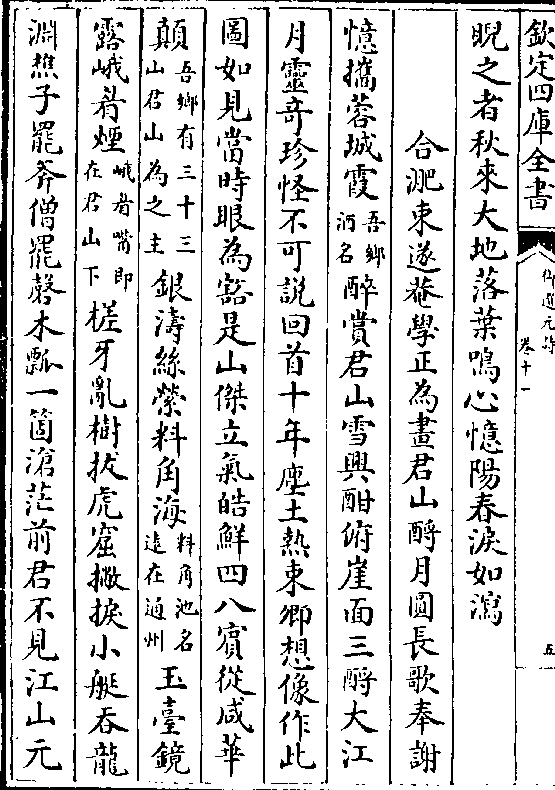 欽定四庫全書
御選元詩 卷十一
五
睨之者秋來大地落葉鳴心憶陽春淚如瀉
合淝束遂菴學正為畫君山酹月圖長歌奉謝
憶攜蓉城霞吾鄉酒名醉賞君山雪興酣俯崖面三酹大江
月靈奇珍怪不可說回首十年塵土熱束卿想像作此
圖如見當時眼為豁是山傑立氣皓鮮四八賓從咸華
顛吾鄉有三十三山君山為之主銀濤絲縈料角海料角池名遠在通州玉臺鏡
露峨眉煙峨眉嘴即在君山下槎牙亂樹拔虎窟撇捩小艇吞龍
淵樵子罷斧僧罷磬木瓢一箇滄茫前君不見江山元